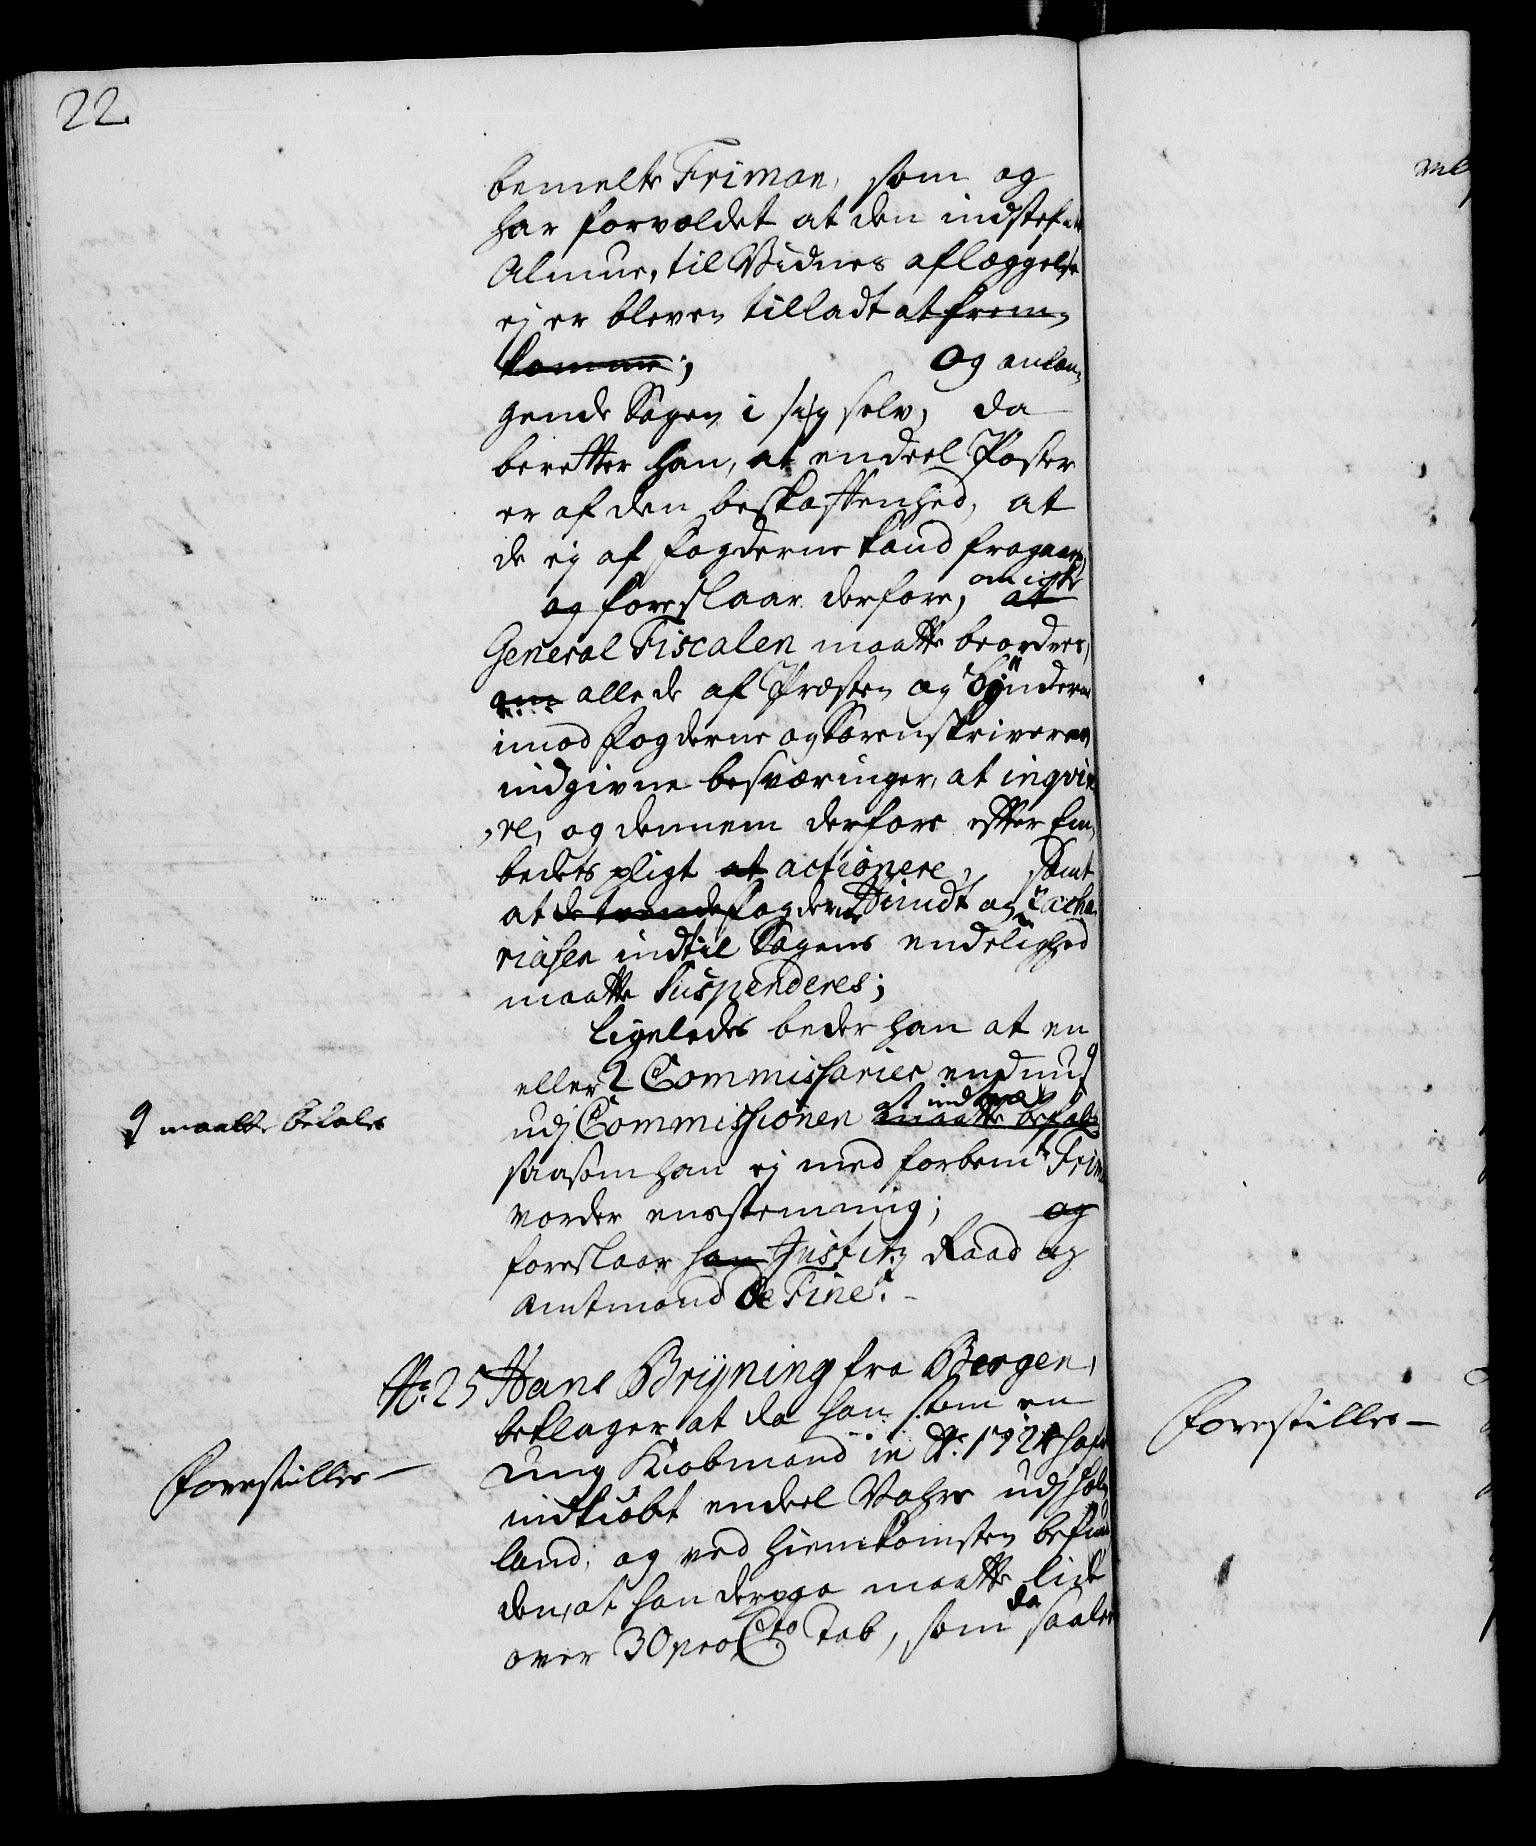 22.
bemelte Friman, som og
har forvoldet at den indstefnte
Almue, til Vidnes aflæggelse
ej er bleven tilladt at frem-
komme; Og anlan-
gende Sagen i sig selv, da
beretter han, at endeel Poster
er af den beskaffenhed, at
de ej af fogderne kand fragaaes,
og foreslaar derfore, at om ikke
General Fiscalen maatte beordres,
om alle de af Præsten og Bønderne
imod fogderne og Sorenskriveren
indgivne besværinger, at inqvire-
re, og dennem derfore efter Em-
bedets pligt at actionere, Samt
at de tvende fogder Hundt og Zacha-
riasen indtil Sagens endelighed
maatte Suspenderes;
Ligeledes beder han at en
eller 2 Commissarier endnu
maatte befales
udj Commissionen at indtræde maatte befales
saasom han ej med forbemte Friman
vorder eenstemmig; og
foreslaar han Justitz Raad og
Amtmand De Fine.
No. 25 Hans Brÿning fra Bergen,
beklager at da han som en
ung Kiøbmand in Ao. 1724 hafde
Forestilles
indkiøbt endeel Vahre udj Hol-
land, og ved Hiemkomsten befun-
den, at han derpaa maatte lide
over 30 pro Cto Tab, som da saaler
Forestilles